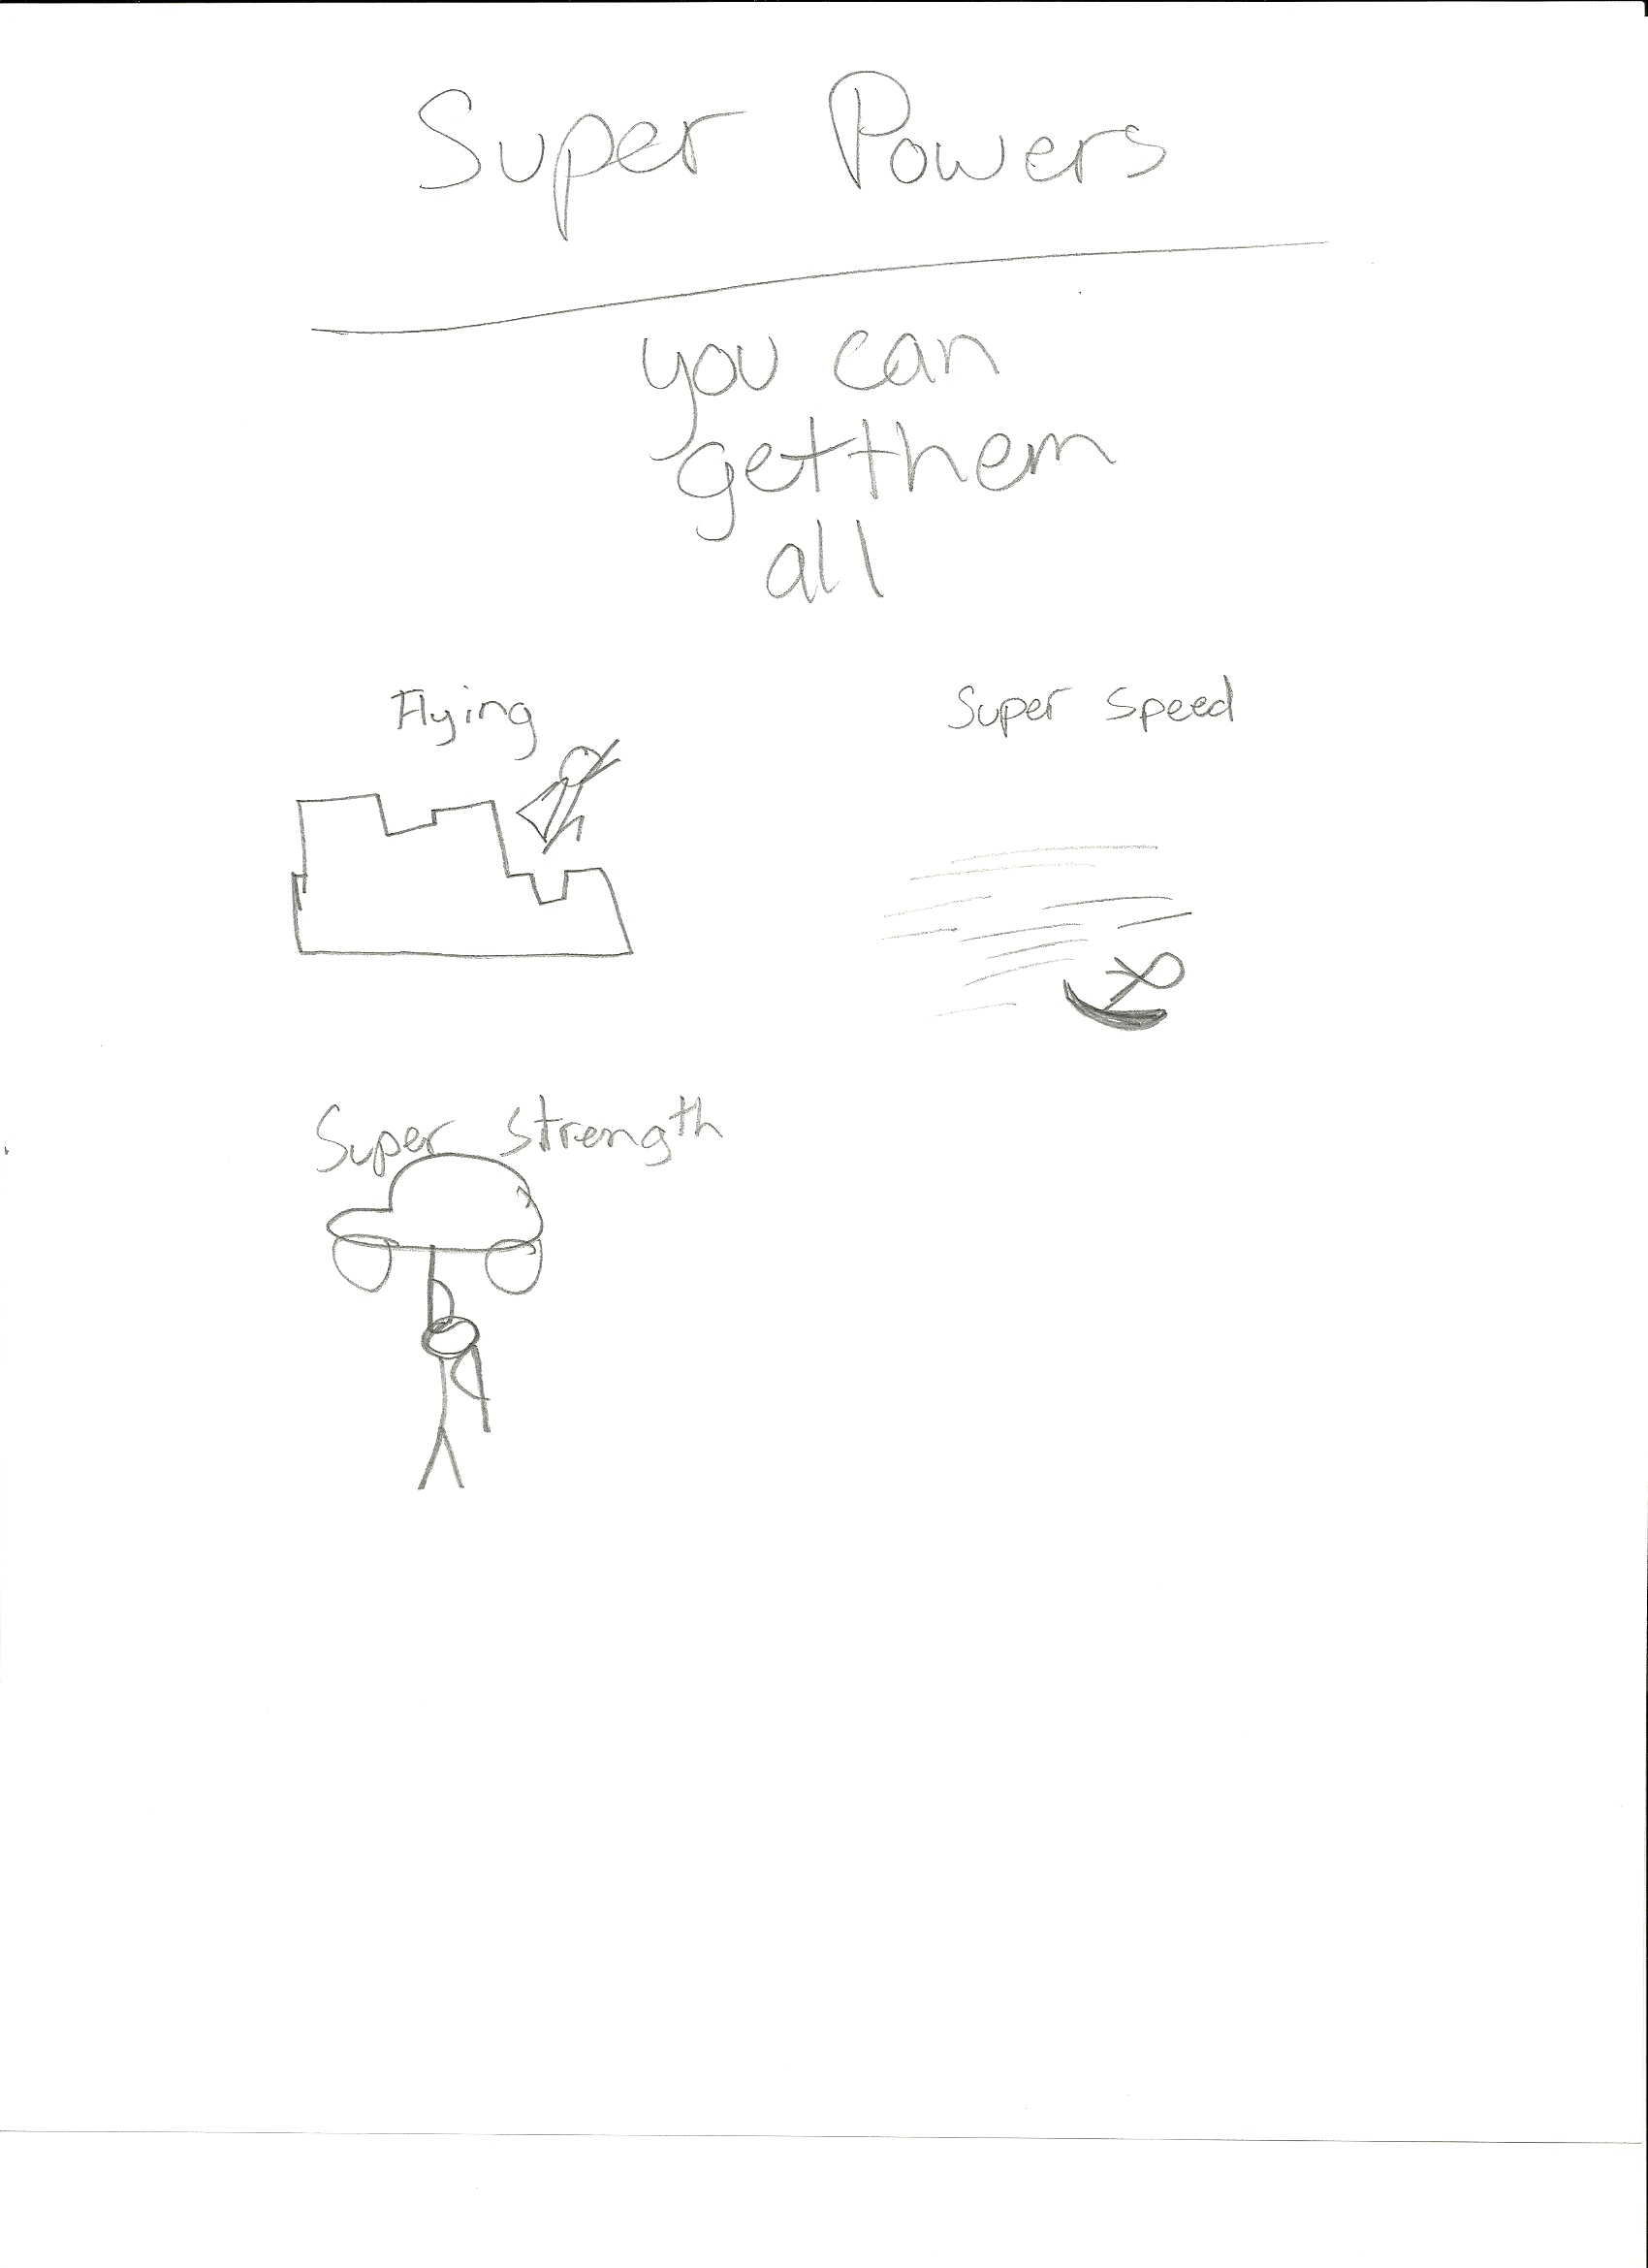 Super Powers
you can
get them
all
Flying
Super Speed
Super Strength